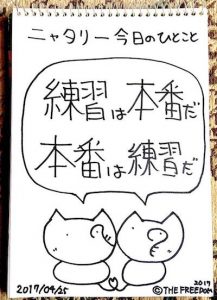 ニャタリー今日のひとこと
練習は本番だ
本番は練習だ
2017/04/25
2017
©THE FREEDOM